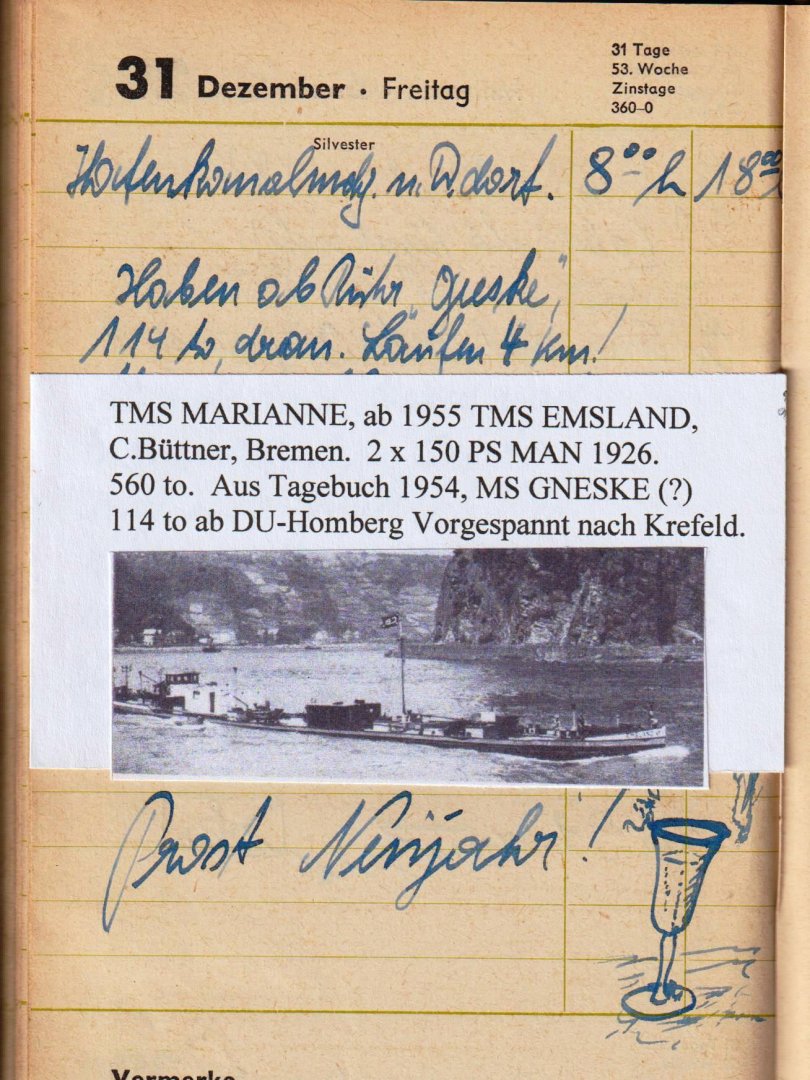 31 Dezember · Freitag
31 Tage
53. Woche
Zinstage
360–0
Silvester
Hafenkanalmdg. n. D.dorf. 8⁰⁰ h 18⁰⁰
Haben ab Ruhr „Gneske“,
114 to, dran. Laufen 4 km!
TMS MARIANNE, ab 1955 TMS EMSLAND,
C.Büttner, Bremen. 2 x 150 PS MAN 1926.
560 to. Aus Tagebuch 1954, MS GNESKE (?)
114 to ab DU-Homberg Vorgespannt nach Krefeld.
Prost Neujahr!
Vermerke